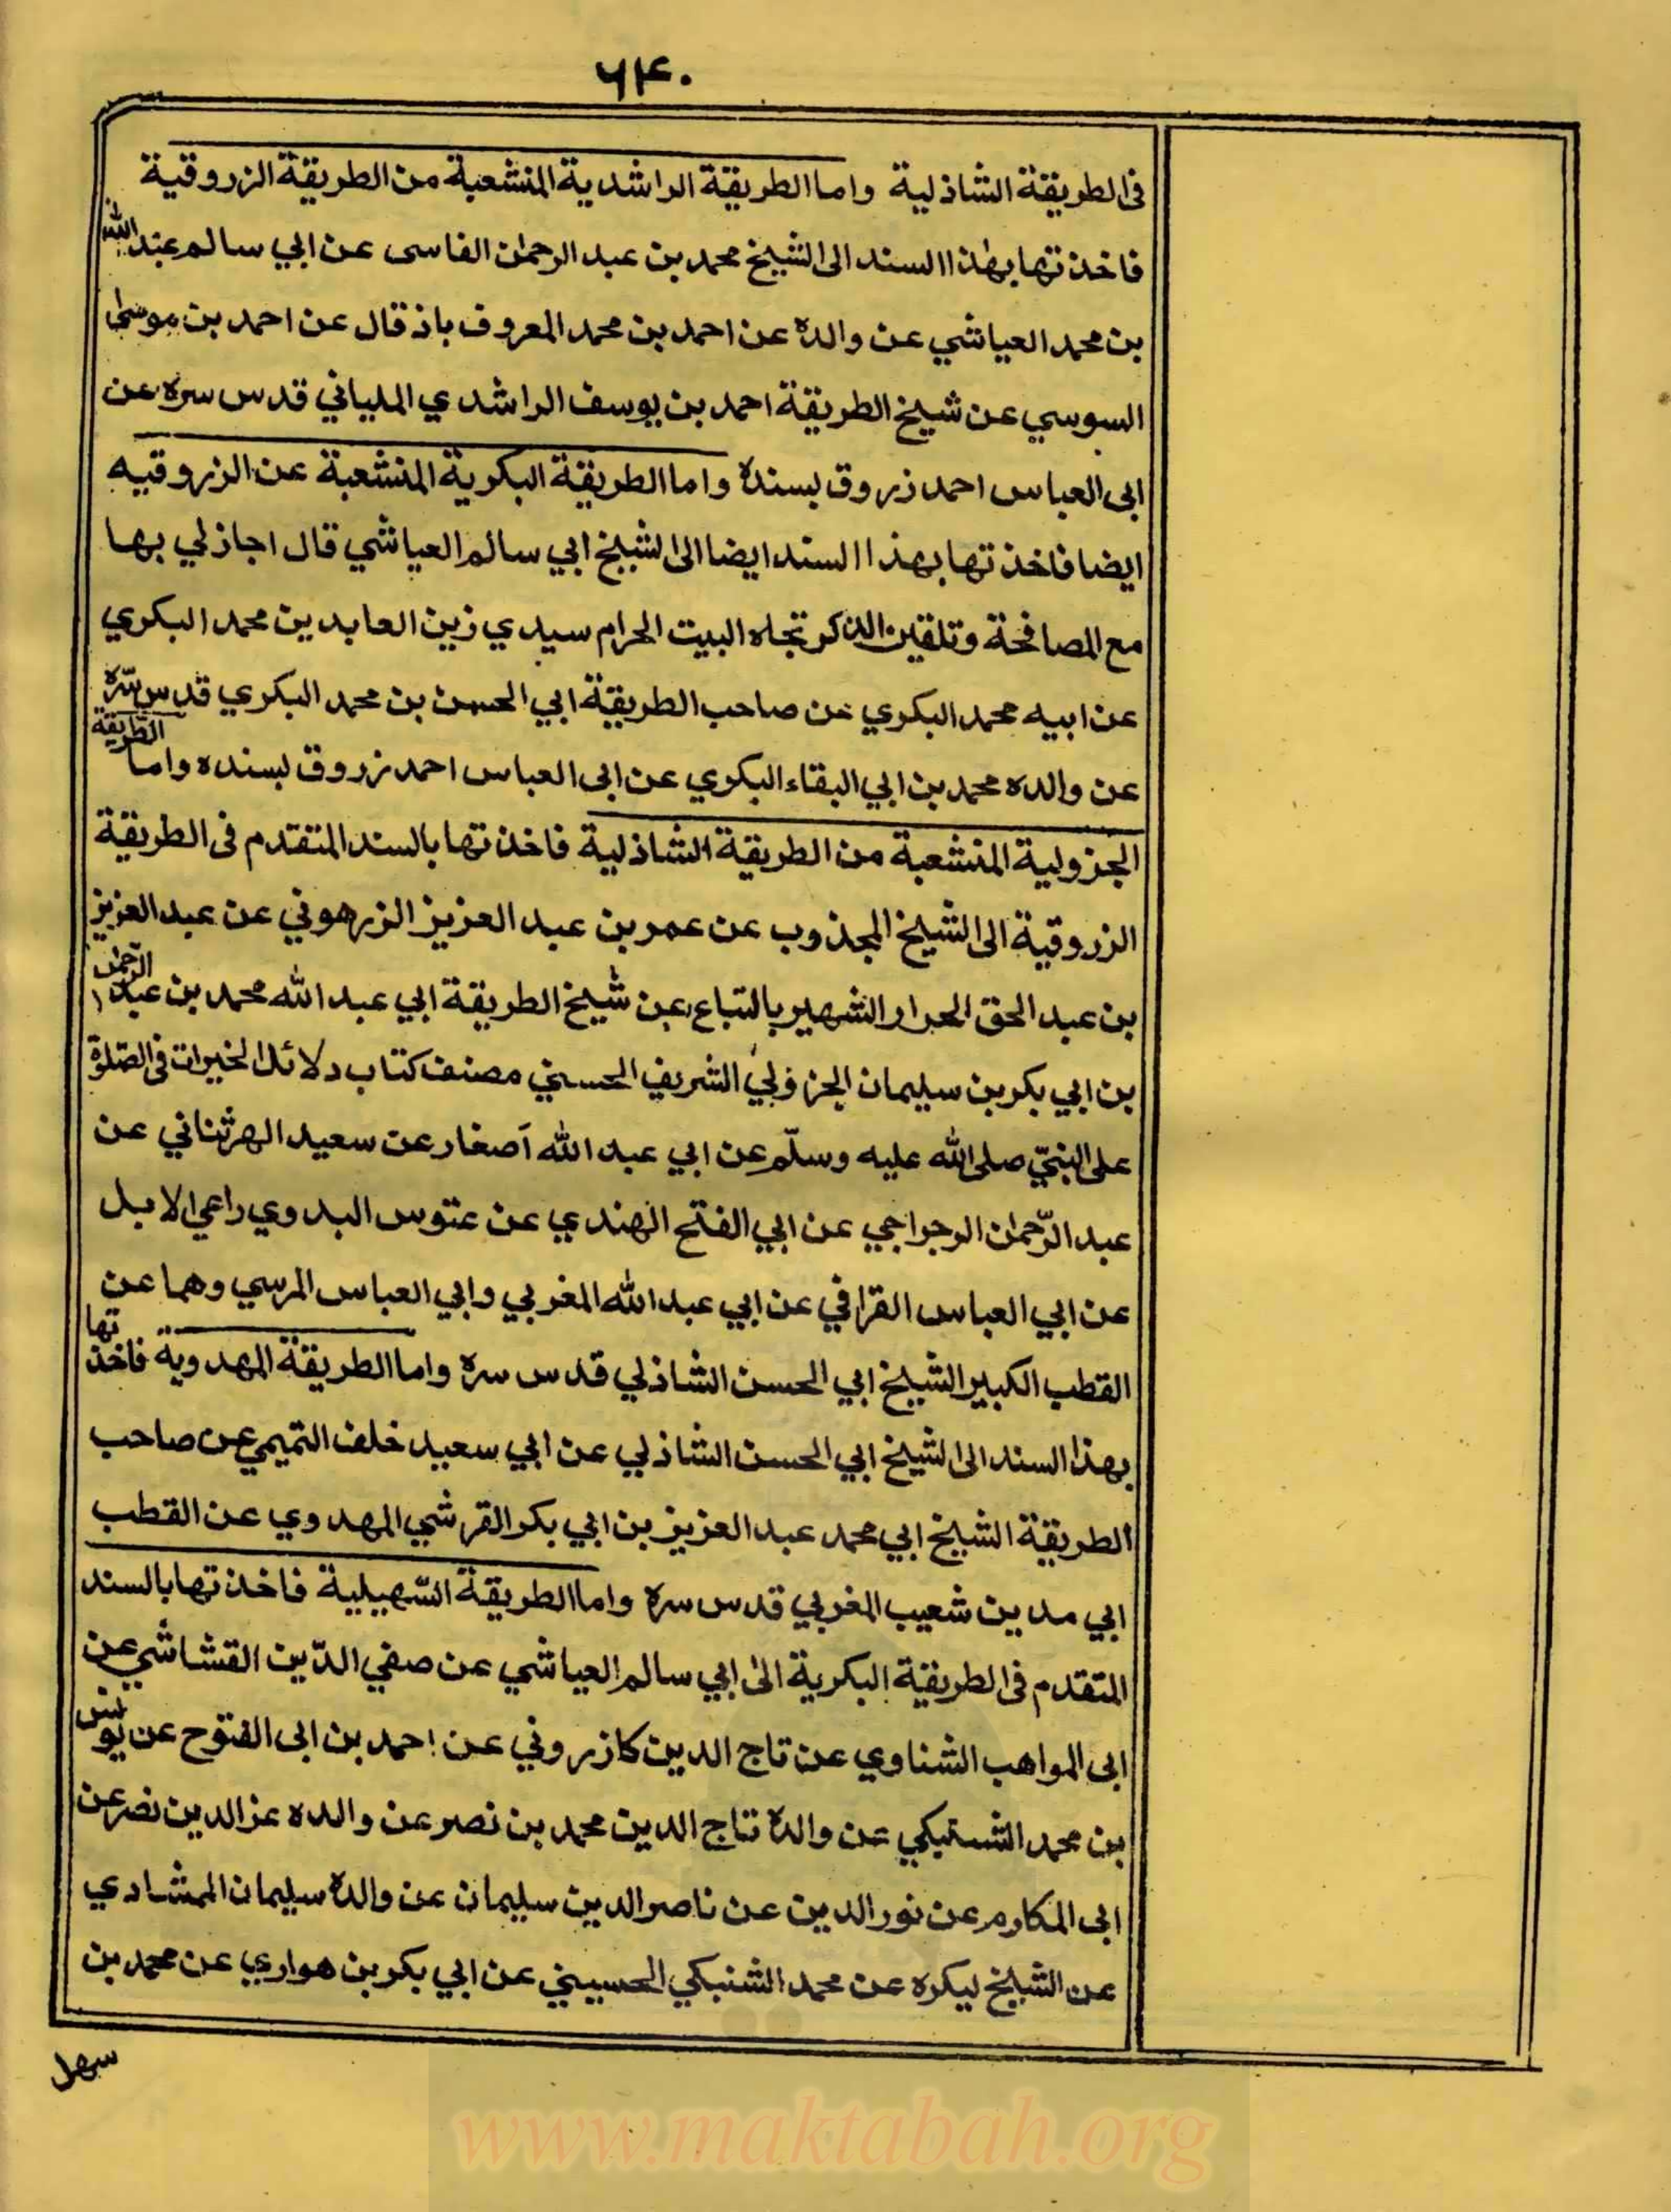 ۶۴۰
فى الطريقة الشاذلية واما الطريقة الراشدية المنشعبة من الطريقة الزروقية
فاخذتها بهذا السند الى الشيخ محمد بن عبد الرحمن الفاسى عن ابي سالم عبد الله
بن محمد العياشي عن والده عن احمد بن محمد المعروف باذقال عن احمد بن موسى
السوسي عن شيخ الطريقة احمد بن يوسف الراشدي الملياني قدس سره عن
ابى العباس احمد زروق بسنده واما الطريقة البكرية المنشعبة عن الزروقيه
ايضا فاخذتها بهذا السند ايضا الى الشيخ ابي سالم العياشي قال اجازلي بها
مع المصافحة وتلقين الذكر تجاه البيت الحرام سيدي زين العابدين محمد البكري
عن ابيه محمد البكري عن صاحب الطريقة ابي الحسن بن محمد البكري قدس سره
عن والده محمد بن ابي البقاء البكري عن ابى العباس احمد زروق بسنده واما الطريقة
الجزولية المنشعبة من الطريقة الشاذلية فاخذتها بالسند المتقدم فى الطريقة
الزروقية الى الشيخ المجذوب عن عمر بن عبد العزيز الزرهوني عن عبد العزيز
بن عبد الحق الحرار الشهير بالتباع عن شيخ الطريقة ابي عبد الله محمد بن عبد الرحمن
بن ابي بكر بن سليمان الجزولي الشريف الحسني مصنف كتاب دلائل الخيرات فى الصلوة
على النبيّ صلى الله عليه وسلّم عن ابي عبد الله آصغار عن سعيد الهرثناني عن
عبد الرّحمان الرجراجي عن ابي الفتح الهندي عن عتوس البدوي راعي الابل
عن ابي العباس القرافي عن ابي عبد الله المغربي وابي العباس المرسي وهما عن
القطب الكبير الشيخ ابي الحسن الشاذلي قدس سره واما الطريقة المهدوية فاخذتها
بهذا السند الى الشيخ ابي الحسن الشاذلي عن ابي سعيد خلف التميمي عن صاحب
الطريقة الشيخ ابي محمد عبد العزيز بن ابي بكر القرشي المهدوي عن القطب
ابي مدين شعيب المغربي قدس سره واما الطريقة السّهيلية فاخذتها بالسند
المتقدم فى الطريقة البكرية الى ابي سالم العياشي عن صفي الدّين القشاشي عن
ابى المواهب الشناوي عن تاج الدين كازروني عن احمد بن ابى الفتوح عن يونس
بن محمد الشستيكي عن والده تاج الدين محمد بن نصر عن والده عز الدين نصر عن
ابى المكارم عن نور الدين عن ناصر الدين سليمان عن والده سليمان الممشادي
عن الشيخ ليكره عن محمد الشنبكي الحسيني عن ابي بكر بن هواري عن محمد بن
سهل
www.maktabah.org